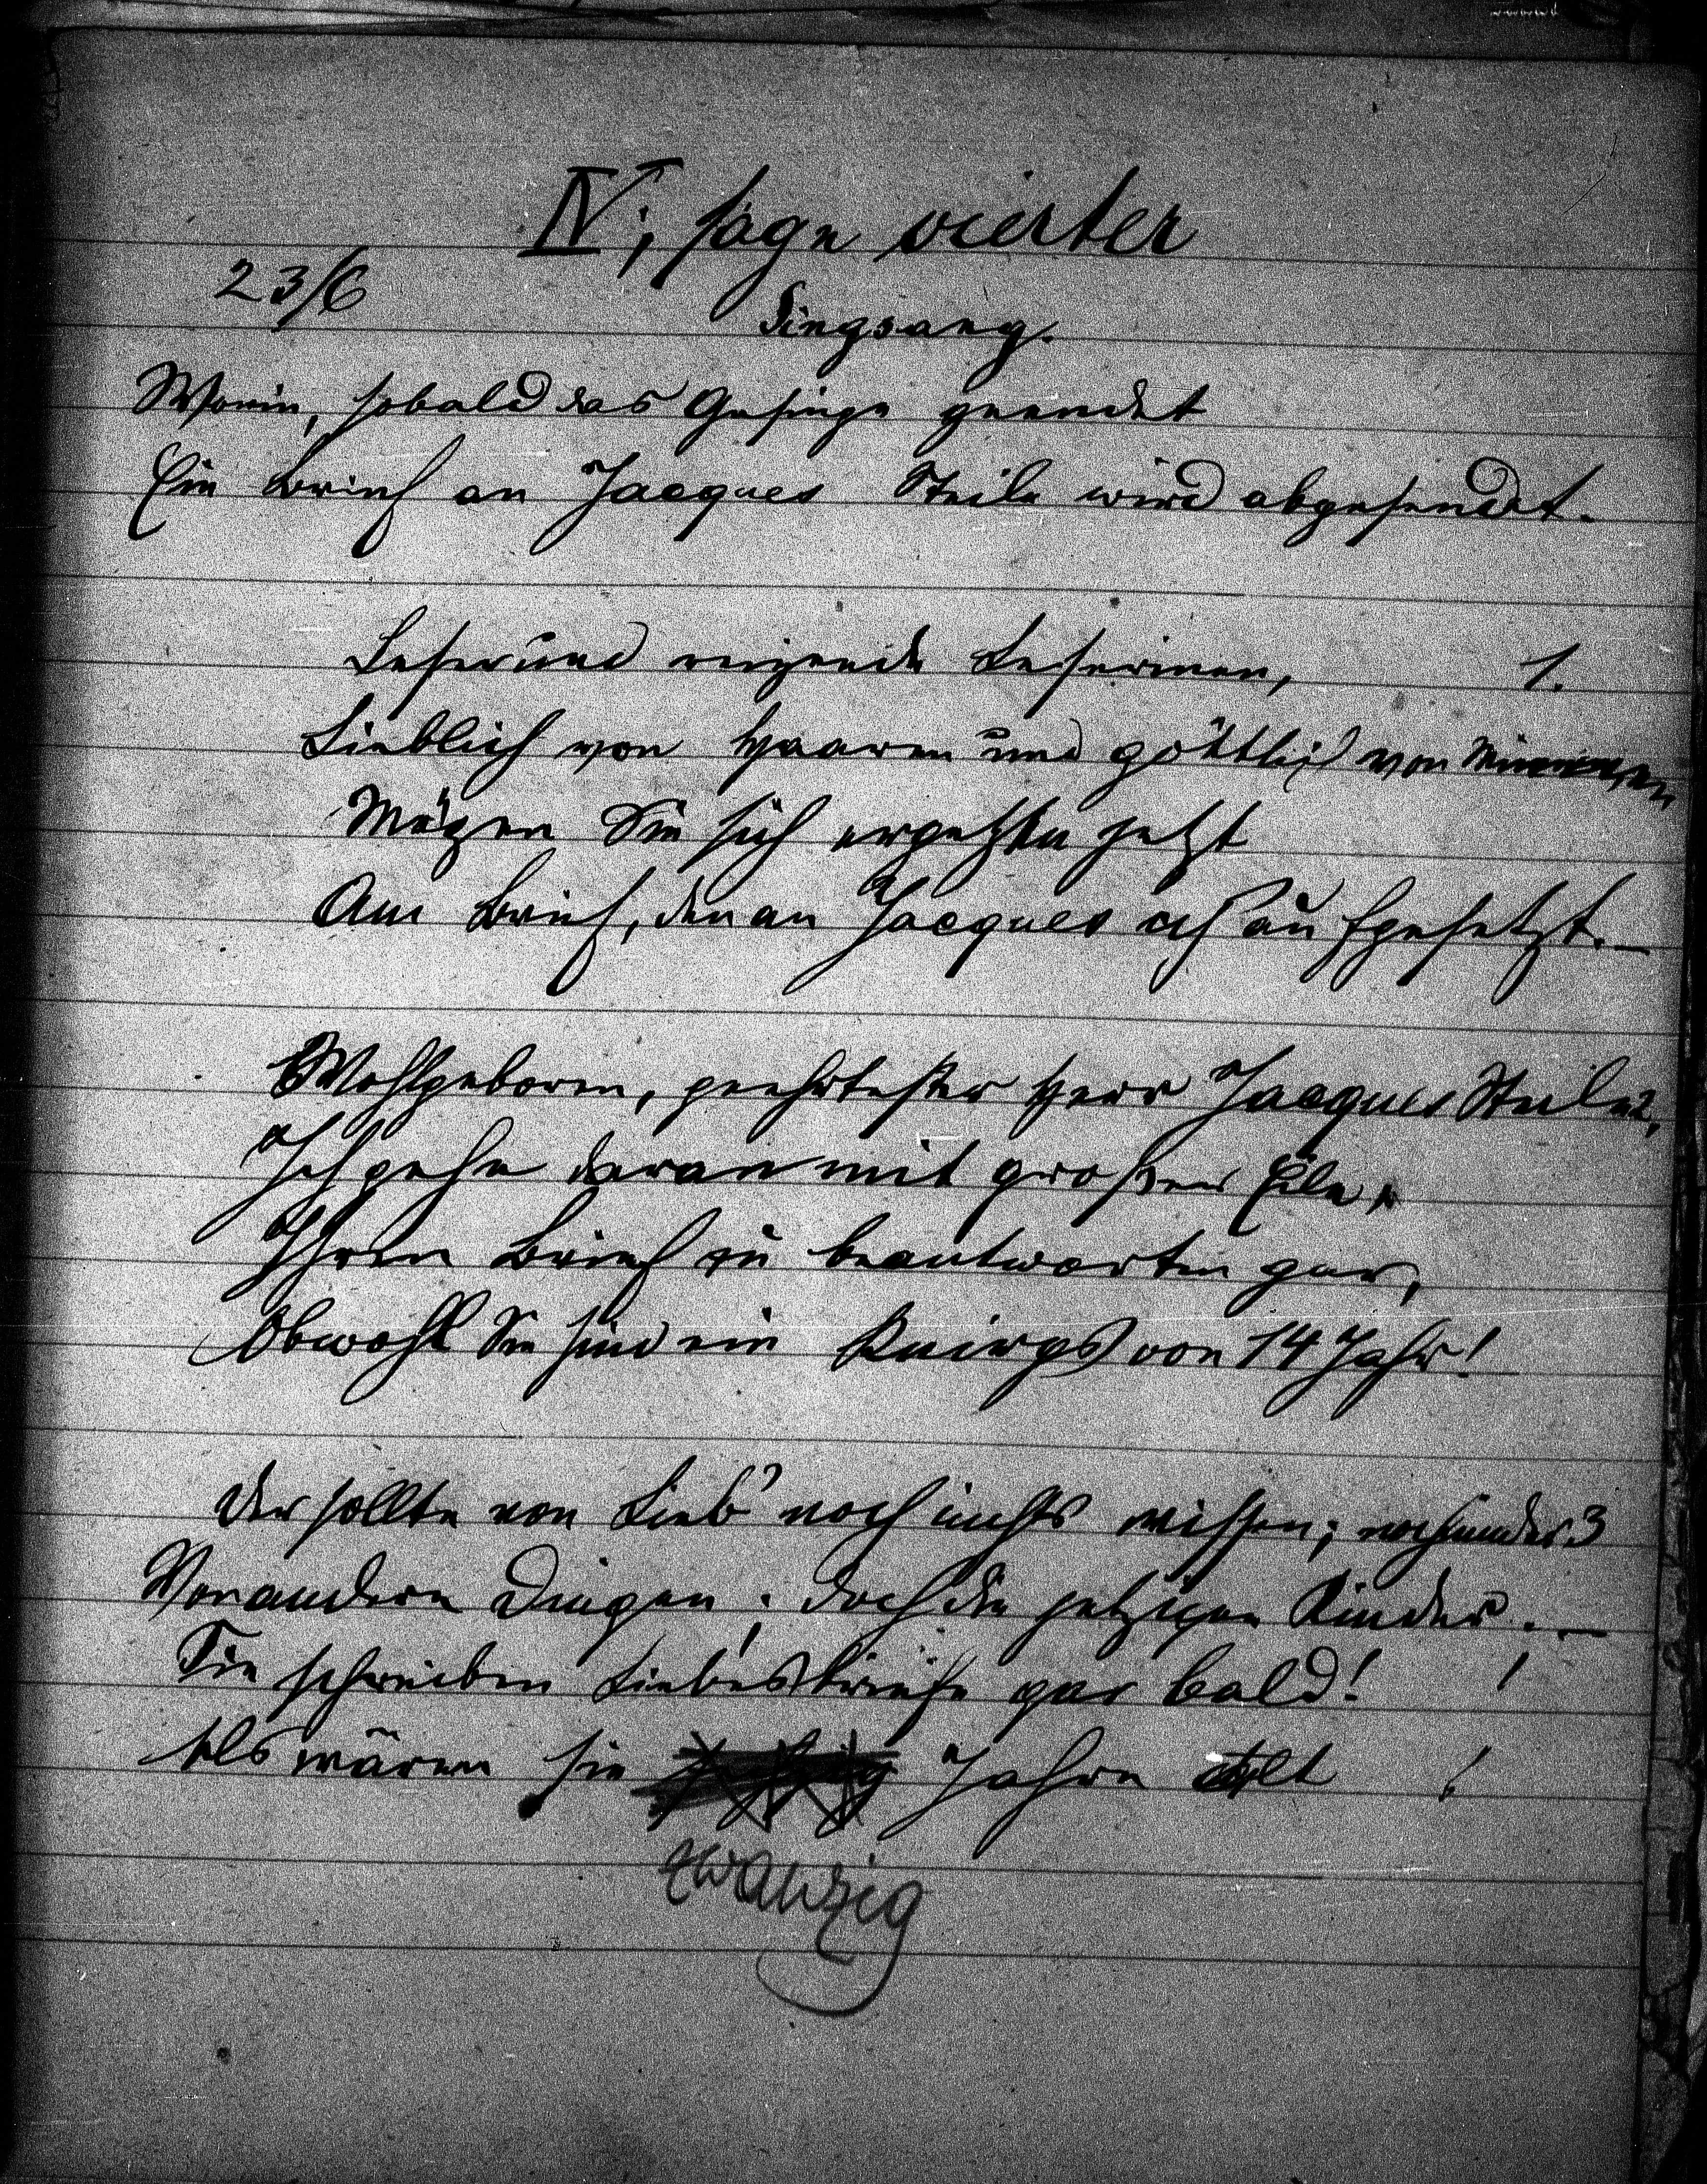 IV; sage vierter
23/6
Singsang.
Worin, sobald das Gesinge geendet
Ein Brief an Jacques Steile wird abgesendet.
Leser und reizende Leserinen, 1.
Lieblich von Haaren und göttlich von
Mögen Sie sich ergetzen jetzt
Am Brief, den an Jacques ich aufgesetzt.—
Wohlgeboren, geehrtester Herr Jacques Steile 2,
Ich gehe daran mit großer Eile,
Ihren Brief zu beantworten gar,
Obwohl Sie sind ein Knirps von 14 Jahr!
Der sollte von Lieb' noch nichts wissen; noch minder 3
Von andern Dingen; doch die jetzigen Kinder.—
Sie schreiben Liebesbriefe gar bald! !
Als wären sie Jahre alt !
zwanzig